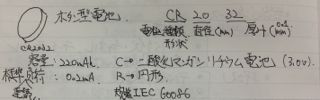 ボタン型電池
CR 20 32
電池種類 直径(mm) 厚み(0.1mm)
形状
CR2032
容量:220mAh C→二酸化マンガンリチウム電池(3.0V)
標準負荷:0.2mA R→円形
規格IEC60086